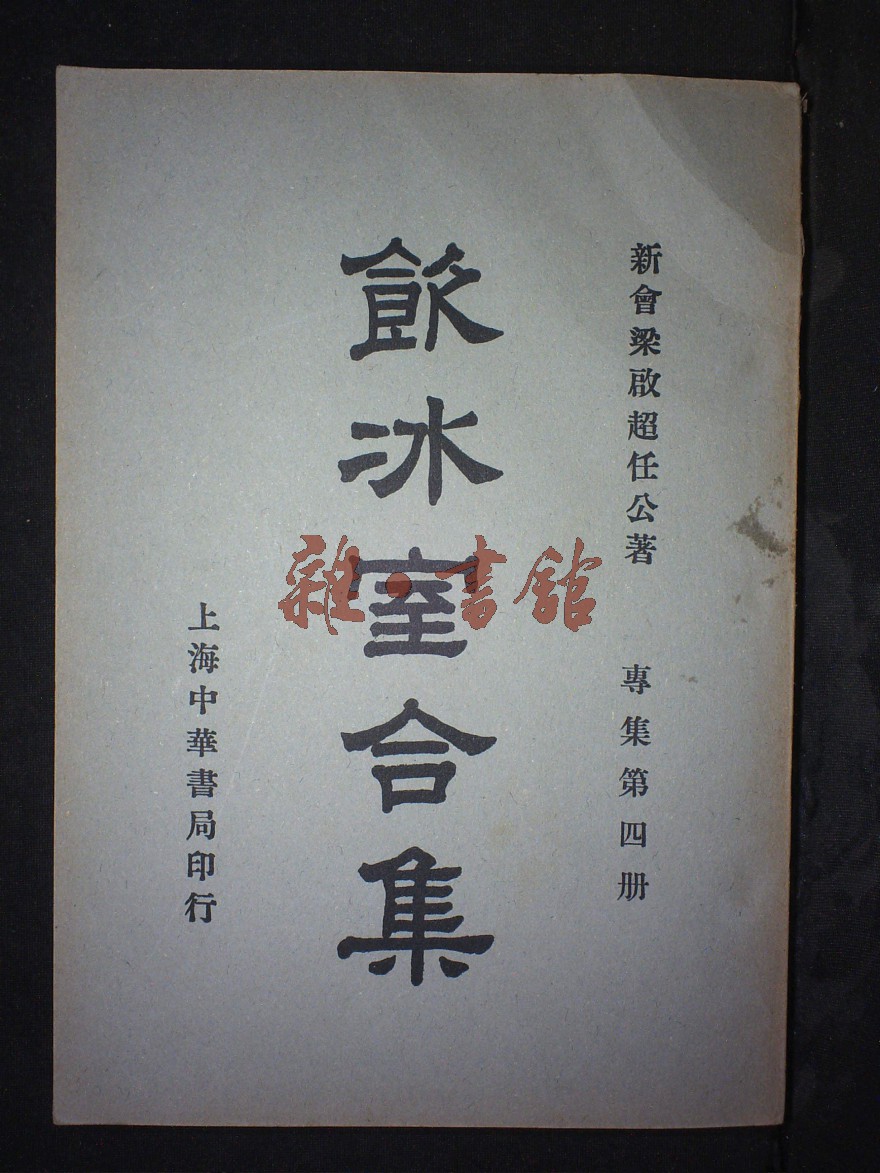 新會梁啟超任公著 專集第四册
飲冰室合集
上海中華書局印行
雜·書館